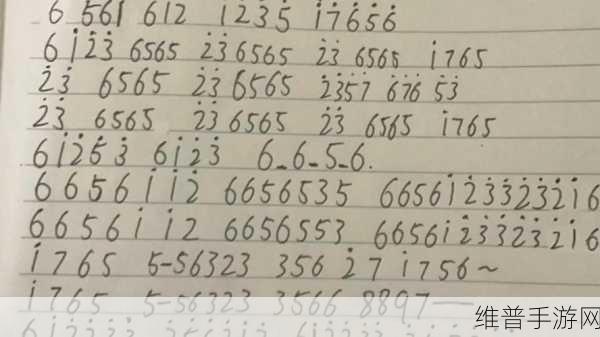 6 561 612 i̇235̇ i̇7̇656̇
6i̇2̇3̇ 6565 2̇3̇6565 2̇3̇ 6565 i̇765
2̇3̇ 6565 2̇3̇6565 2̇3̇5̇7̇ 6̇7̇6̇ 5̇3̇
2̇3̇ 6565 2̇3̇6565 2̇3̇ 6565 i̇765
6i̇2̇5̇3̇ 6i̇2̇3̇ 6-6-5-6.
6656i̇i̇2̇ 6656535 6656i̇2̇3̇3̇2̇3̇2̇i̇6
6656i̇i̇2 6656553 6656i̇2̇3̇3̇2̇3̇2̇i̇6
i̇765 5-56323 356 2̇7 i̇756~
i̇765 5-56323 3566 8897—
维普手游网